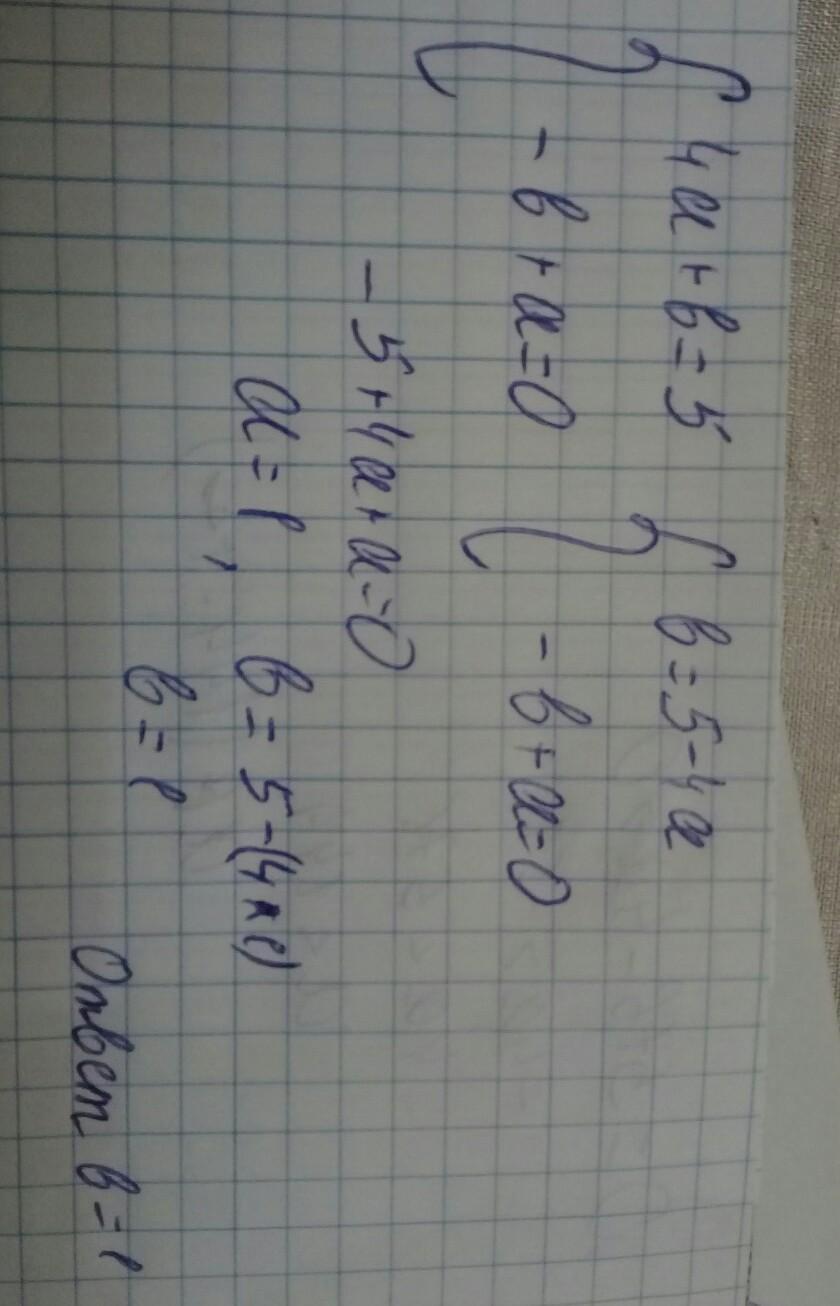 { 4a + b = 5 { b = 5 - 4a
{ - b + a = 0 { - b + a = 0
- 5 + 4a + a = 0
a = 1 , b = 5 - (4 × 1)
b = 1
Ответ b = 1